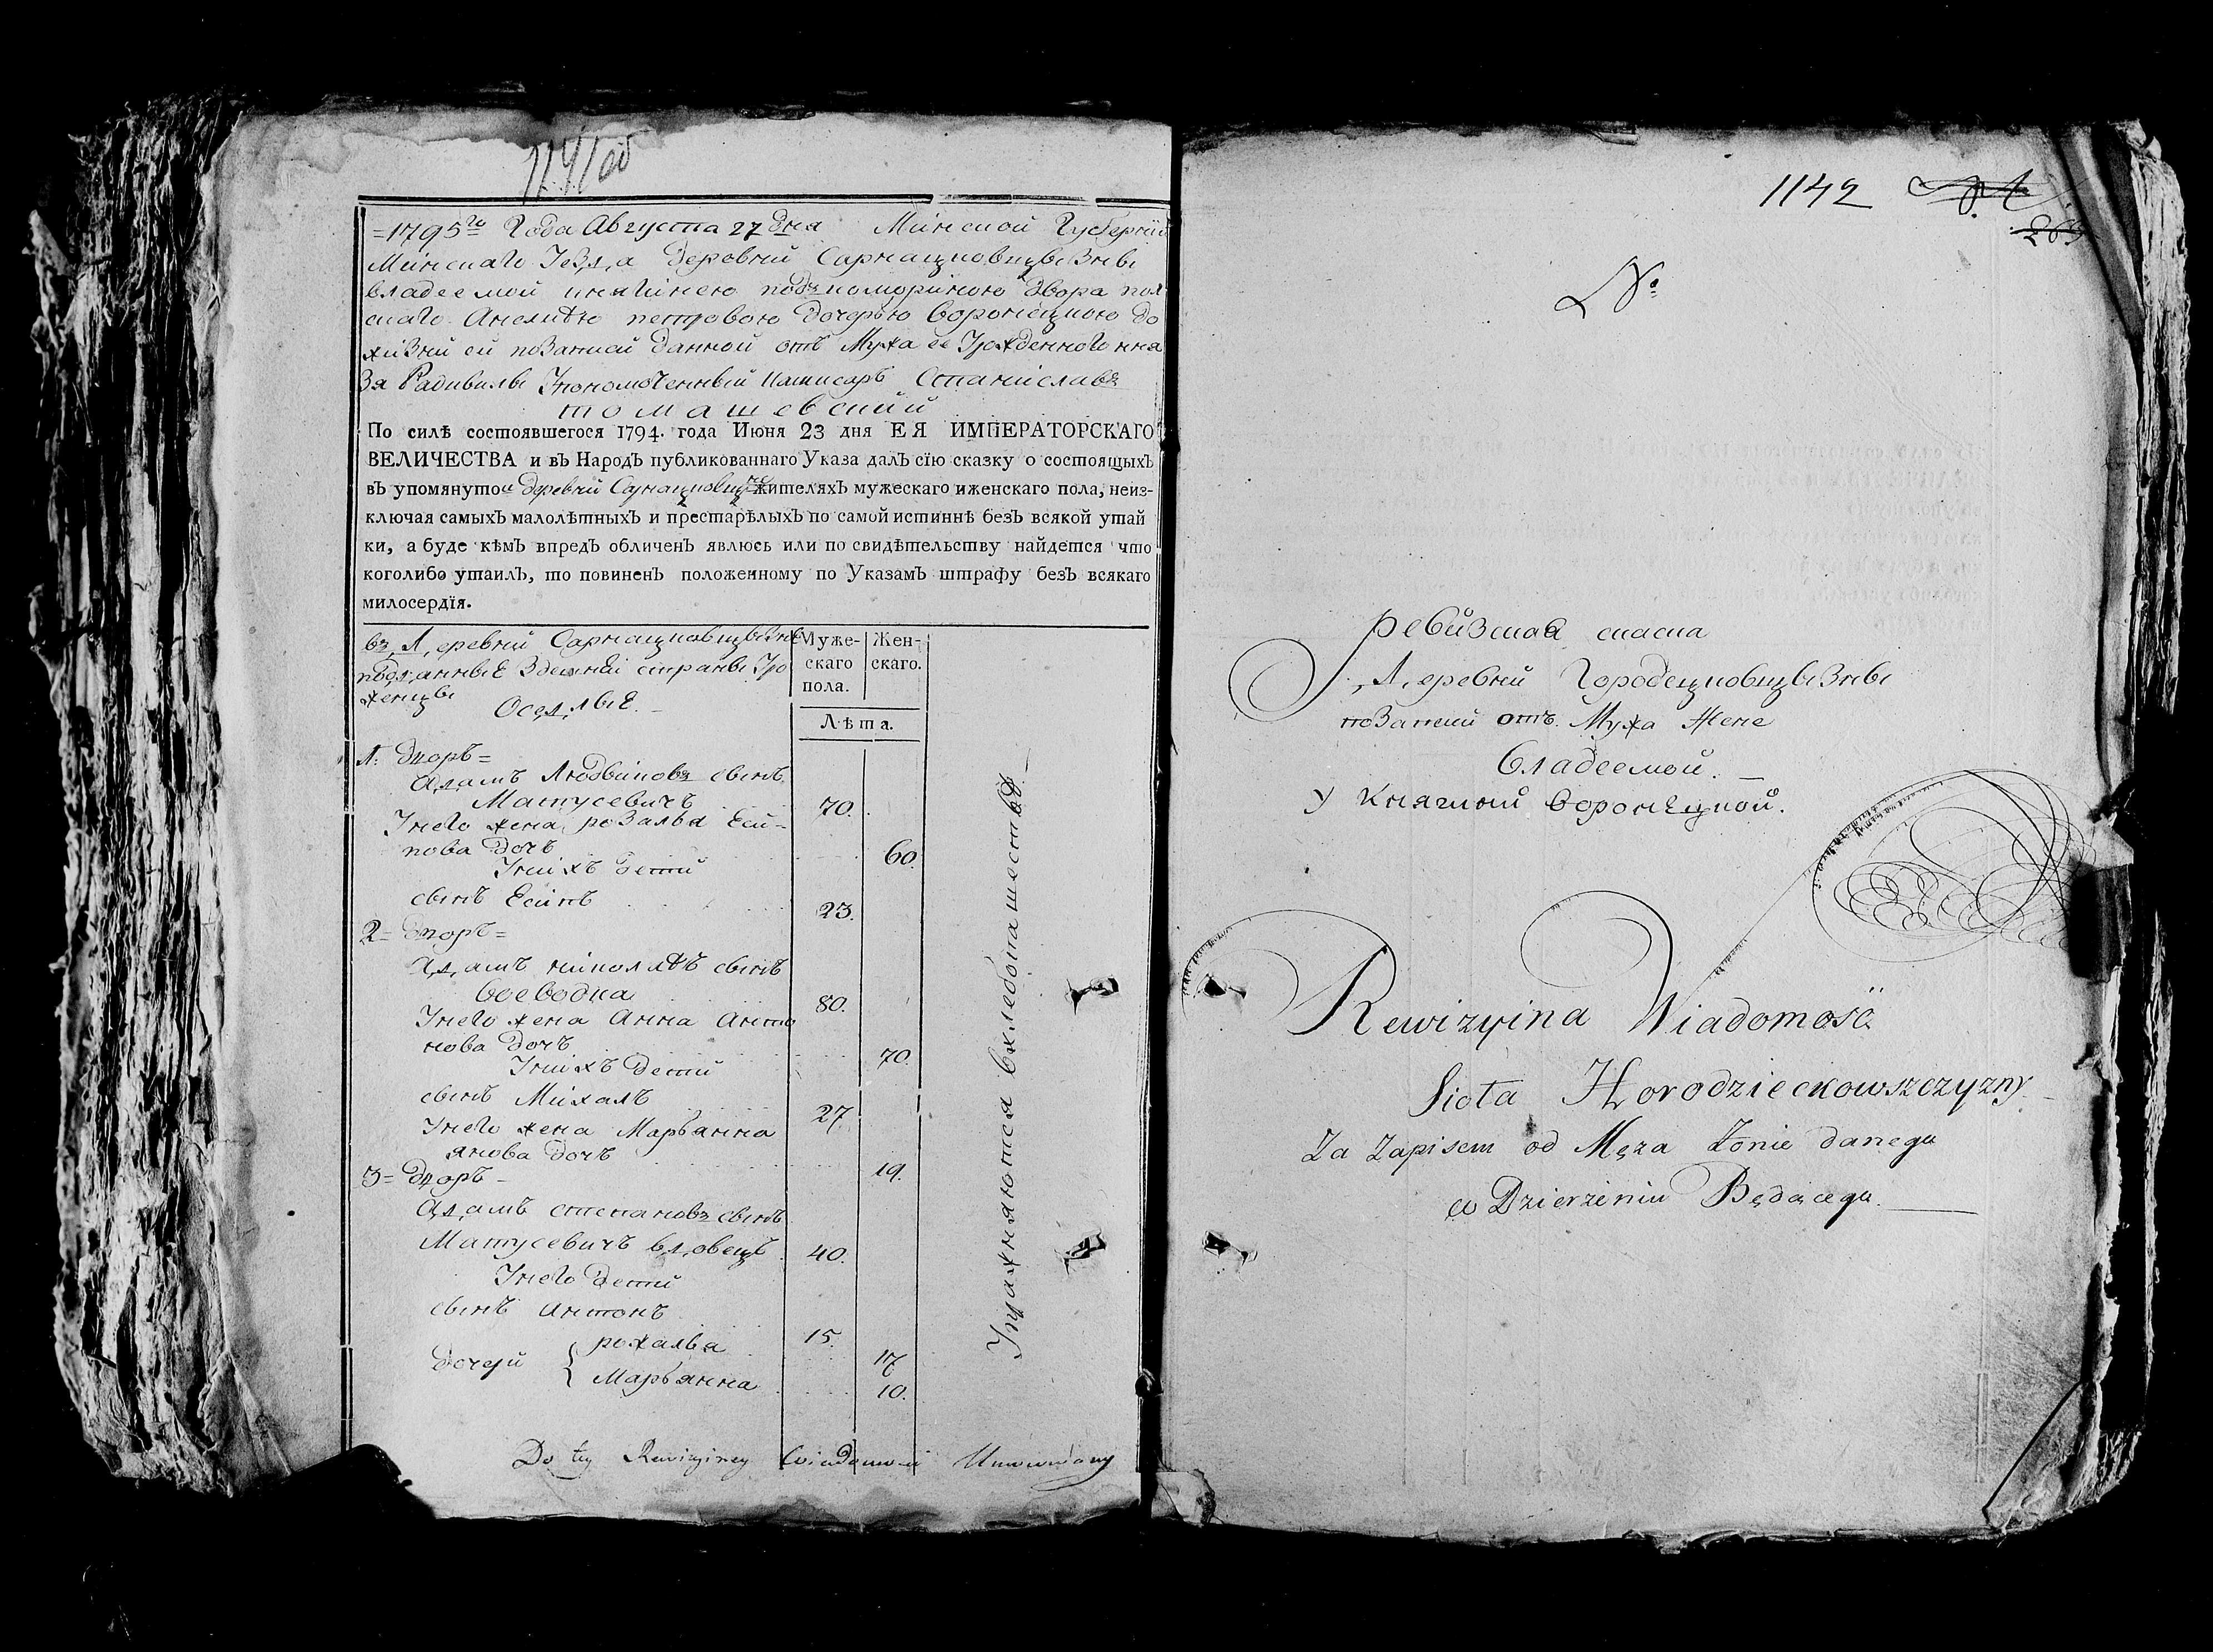 1141 об
=1795го Года Августа 27 дня Минской Губернии
Минскаго Уезда деревни Сарнацковщызны
владеемой княгинею подкоморыною двора пол
скаго Анелиею петровою дочерью воронецкою до
жизни ей позаписи данной отъ Мужа ее Урожденного кня
зя Радивилы Упономоченный Камисаръ Станиславъ
томашевский
По силѣ состоявшегося 1794. года Июня 23 дня ЕЯ ИМПЕРАТОРСКАГО
ВЕЛИЧЕСТВА и въ Народъ публикованнаго Указа далъ сїю сказку о состоящыхъ
въ упомянутои деревни Сарнацковщызне жителяхъ мужескаго иженскаго пола, неиз-
ключая самыхъ малолѣтныхъ и престарѣлыхъ по самой истиннѣ безъ всякой утай
ки, а буде кѣмъ впредъ обличенъ явлюсь или по свидѣтельству найдется что
коголибо утаилъ, то повиненъ положенному по Указамъ штрафу безъ всякаго
милосердїя.
въ Деревни Сарнацковщызне
подданные Здешней страны Уро
женцы
Оседлые.
Муже-
скаго
пола.
Жен-
скаго.
Лѣта.
1: Дворъ=
Адамъ Людвиковъ сынъ
Матусевичъ 70.
Унего жена розалья Еси-
пова дочъ 60.
Унихъ дети
сынъ Есипъ 23.
2= Дворъ=
Адамъ николаевъ сынъ
воеводка 80.
Унего жена Анна Анто
нова дочъ 70.
Унихъ дети
сынъ Михалъ 27.
Унего жена Марьянна
янова дочъ 19.
3= Дворъ-
Адамъ степановъ сынъ
Матусевичъ вдовецъ 40.
Унего дети
сынъ антонъ 15.
дочери
рожалья 17
Марьянна 10.
Упражняются вхлебопашестве.
Do tey Rewizyiney Wiadomosci
1142
263
№
ревизская скаска
Деревни Городецковщызны
позаписи отъ Мужа Жене
владеемой.
У княгини воронецкой.
Rewizyina Wiadomość
Sioła Horodzieckowszczyzny
Za Zapisem od Męża Żonie danego
w Dzierżeniu Będącego.